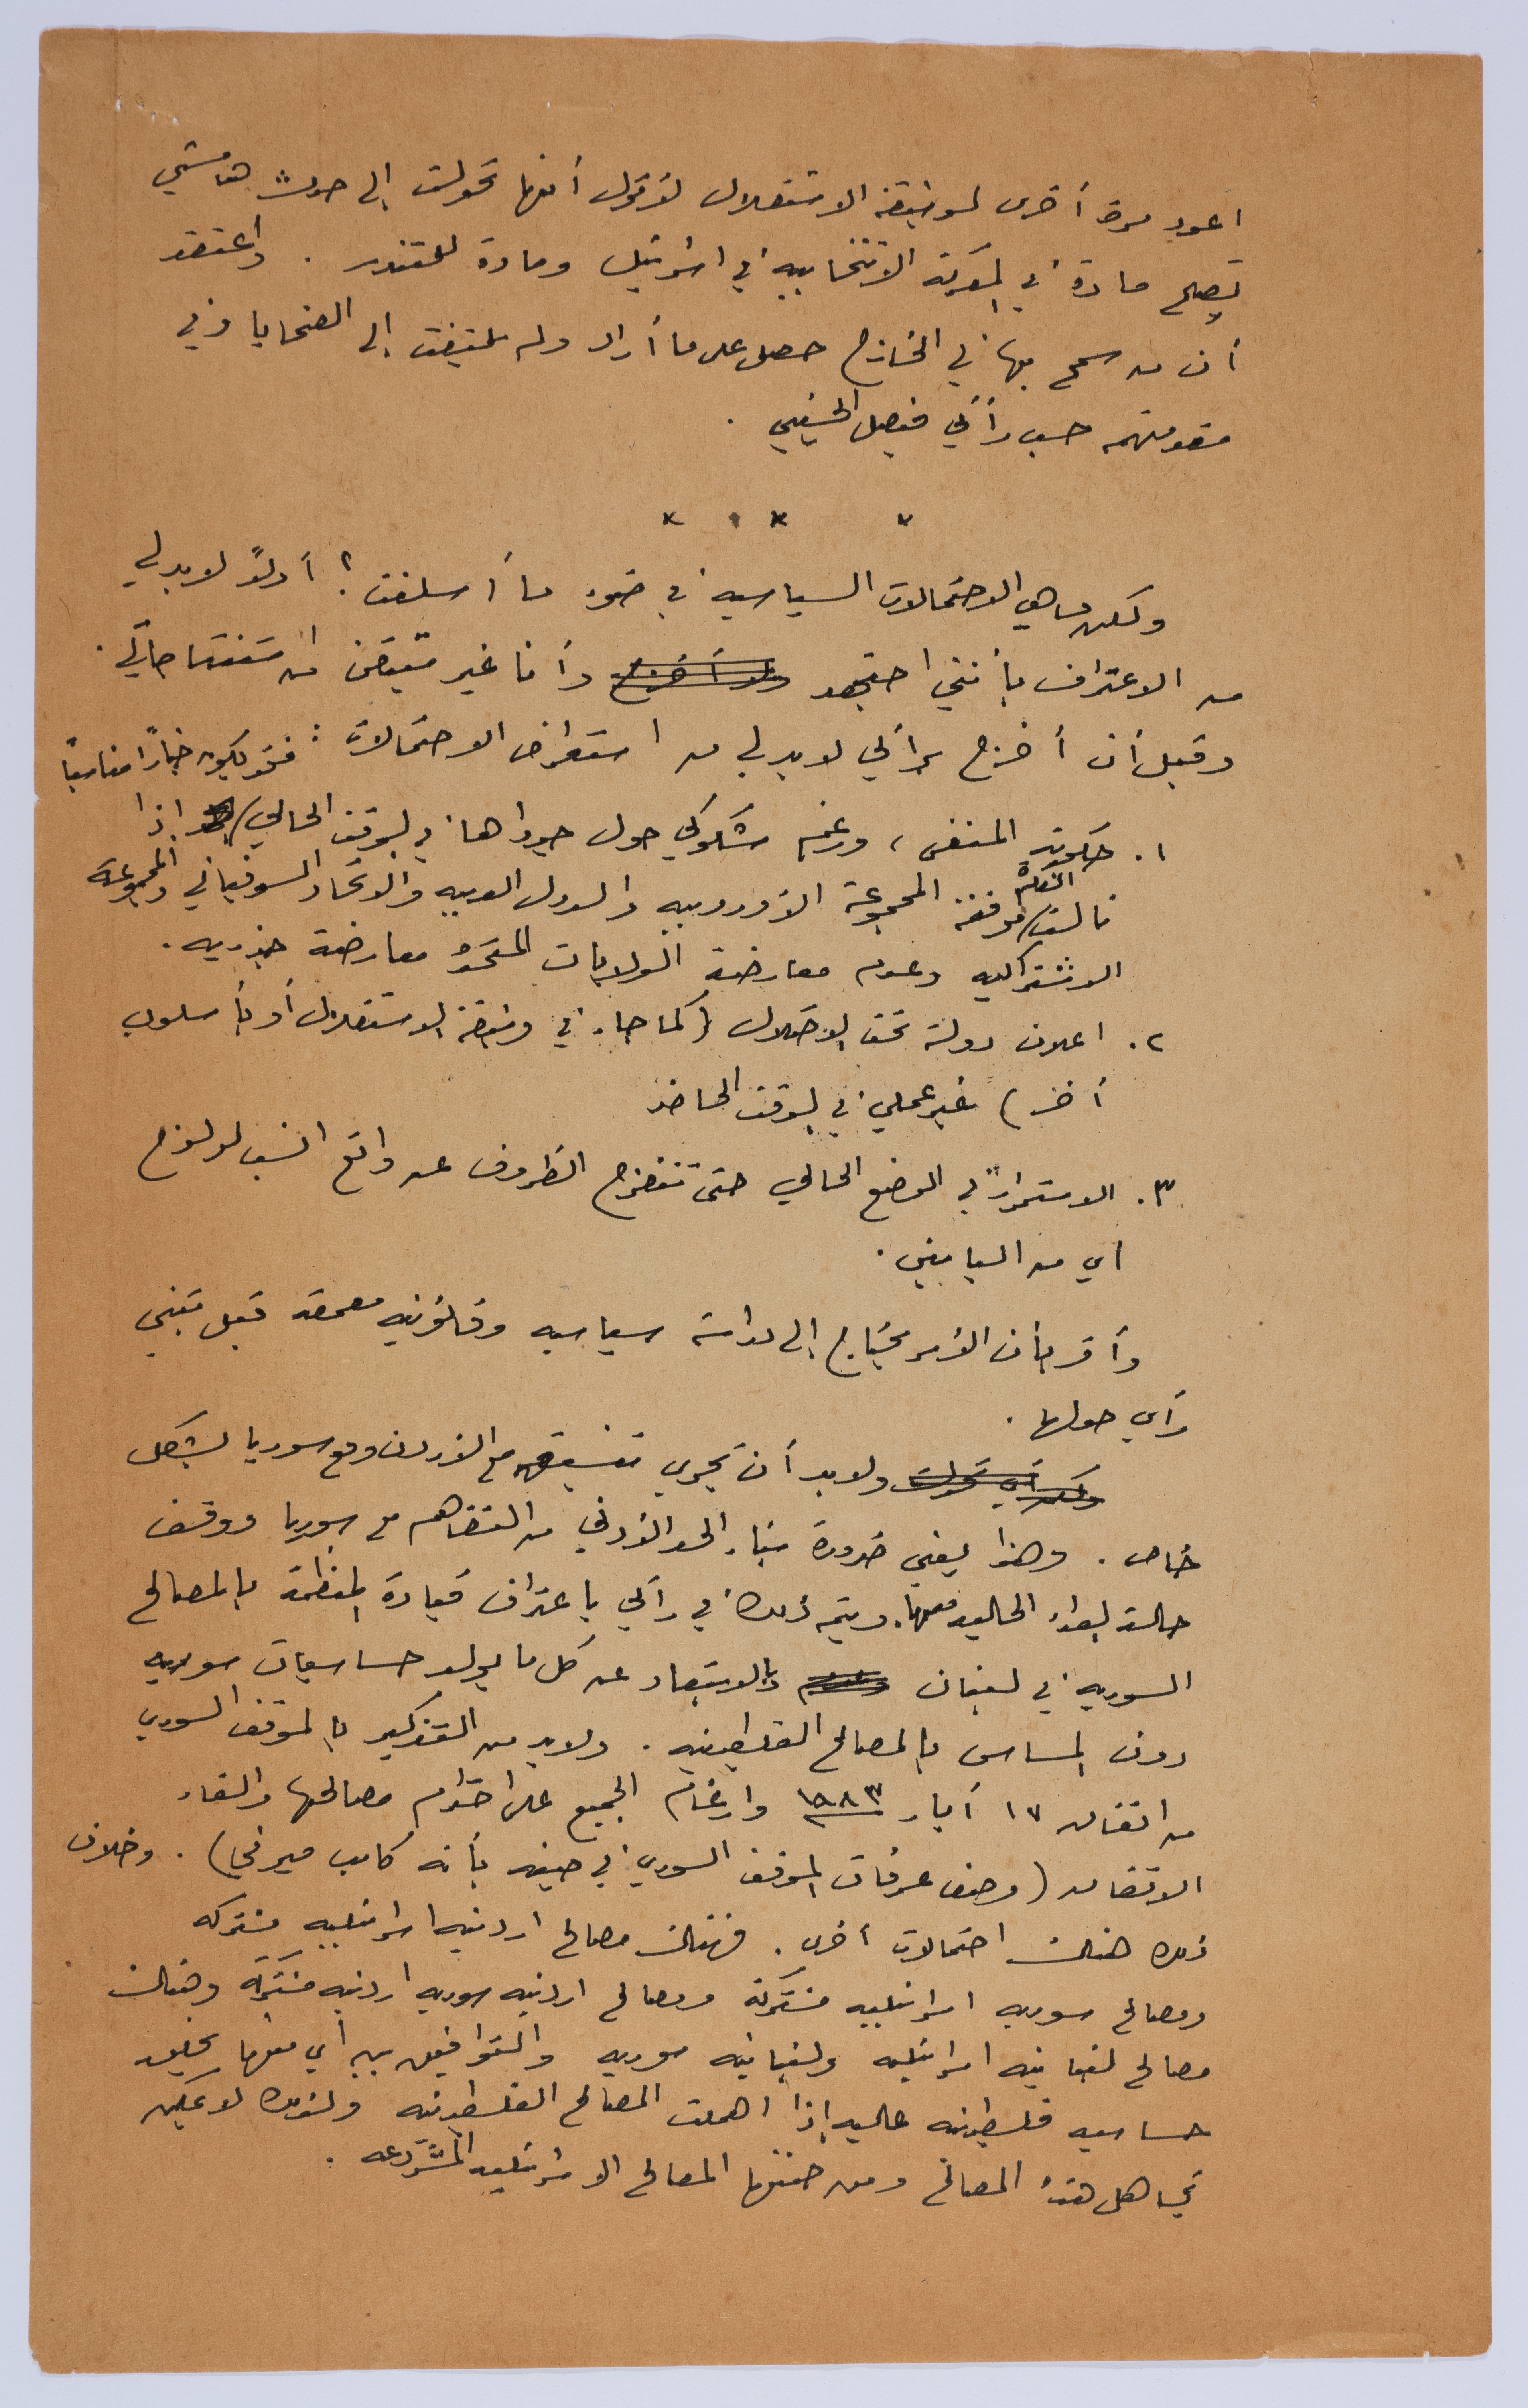 اعود مرة أخرى لوثيقة الاستقلال لأقول أنها تحولت إلى حدث هامشي
يصلح مادة في المعركة الانتخابيه في اسرائيل ومادة للتندر . واعتقد
أن من سمح بها في الخارج حصل على ما أراد ولم يلتفت إلى الضحايا وفي
مقدمتهم حسب رأيي فيصل الحسيني .
* * *
ولكن ما هي الاحتمالات السياسيه في ضوء ما أسلفت ؟ أولاً لا بد لي
من الاعتراف بأنني اجتهد وأنا غير متيقن من استنتاجاتي .
وقبل أن أخرج برأيي لا بد لي من استعراض الاحتمالات :
١ . حكومة المنفى ، ورغم شكوكي حول جدواها في الوقت الحالي / فقد يكون خياراً مناسباً إذا
نالت / الفكرة موافقة المجموعة الأوروبيه والدول العربيه والاتحاد السوفياتي والمجموعة
الاشتراكيه وعدم معارضة الولايات المتحدة معارضة جذريه .
٢ . اعلان دولة تحت الاحتلال ( كما جاء في وثيقة الاستقلال أو بأسلوب
أخر ) غير عملي في الوقت الحاضر
٣ . الاستمرار في الوضع الحالي حتى تنفرج الظروف عن واقع انسب لولوج
اي من السابقين .
وأقر بأن الأمر يحتاج إلى دراسة سياسيه وقانونيه معمقة قبل تبني
رأي حولها .
ولا بد أن يجري تنسيق مع الأردن ومع سوريا بشكل
خاص . وهذا يعني ضرورة بناء الحد الأدنى من التفاهم مع سوريا ووقف
حالة العداء الحاليه معها . ويتم ذلك في رأيي باعتراف قيادة المنظمة بالمصالح
السوريه في لبنان وبالابتعاد عن كل ما يولد حساسيات سوريه
دون المساس بالمصالح الفلسطينيه . ولا بد من التذكير بالموقف السوري
من اتفاق ١٧ أيار ١٩٨٣ وارغام الجميع على احترام مصالحها والغاء
الاتفاق ( وصف عرفات الموقف السوري في حينه بأنه كامب ميرفي ) . وخلاف
ذلك هناك احتمالات أخرى . فهناك مصالح اردنيه اسرائيليه مشتركه
ومصالح سوريه اسرائيليه مشتركة ومصالح اردنيه سوريه اردنيه مشتركة وهناك
مصالح لبنانيه اسرائيليه ولبنانيه سوريه والتوافق بين أي منها يخلق
حساسيه فلسطينيه عاليه إذا اهملت المصالح الفلسطينيه ولذلك لا يمكن
تجاهل هذه المصالح ومن ضمنها المصالح الاسرائيليه المشروعه .